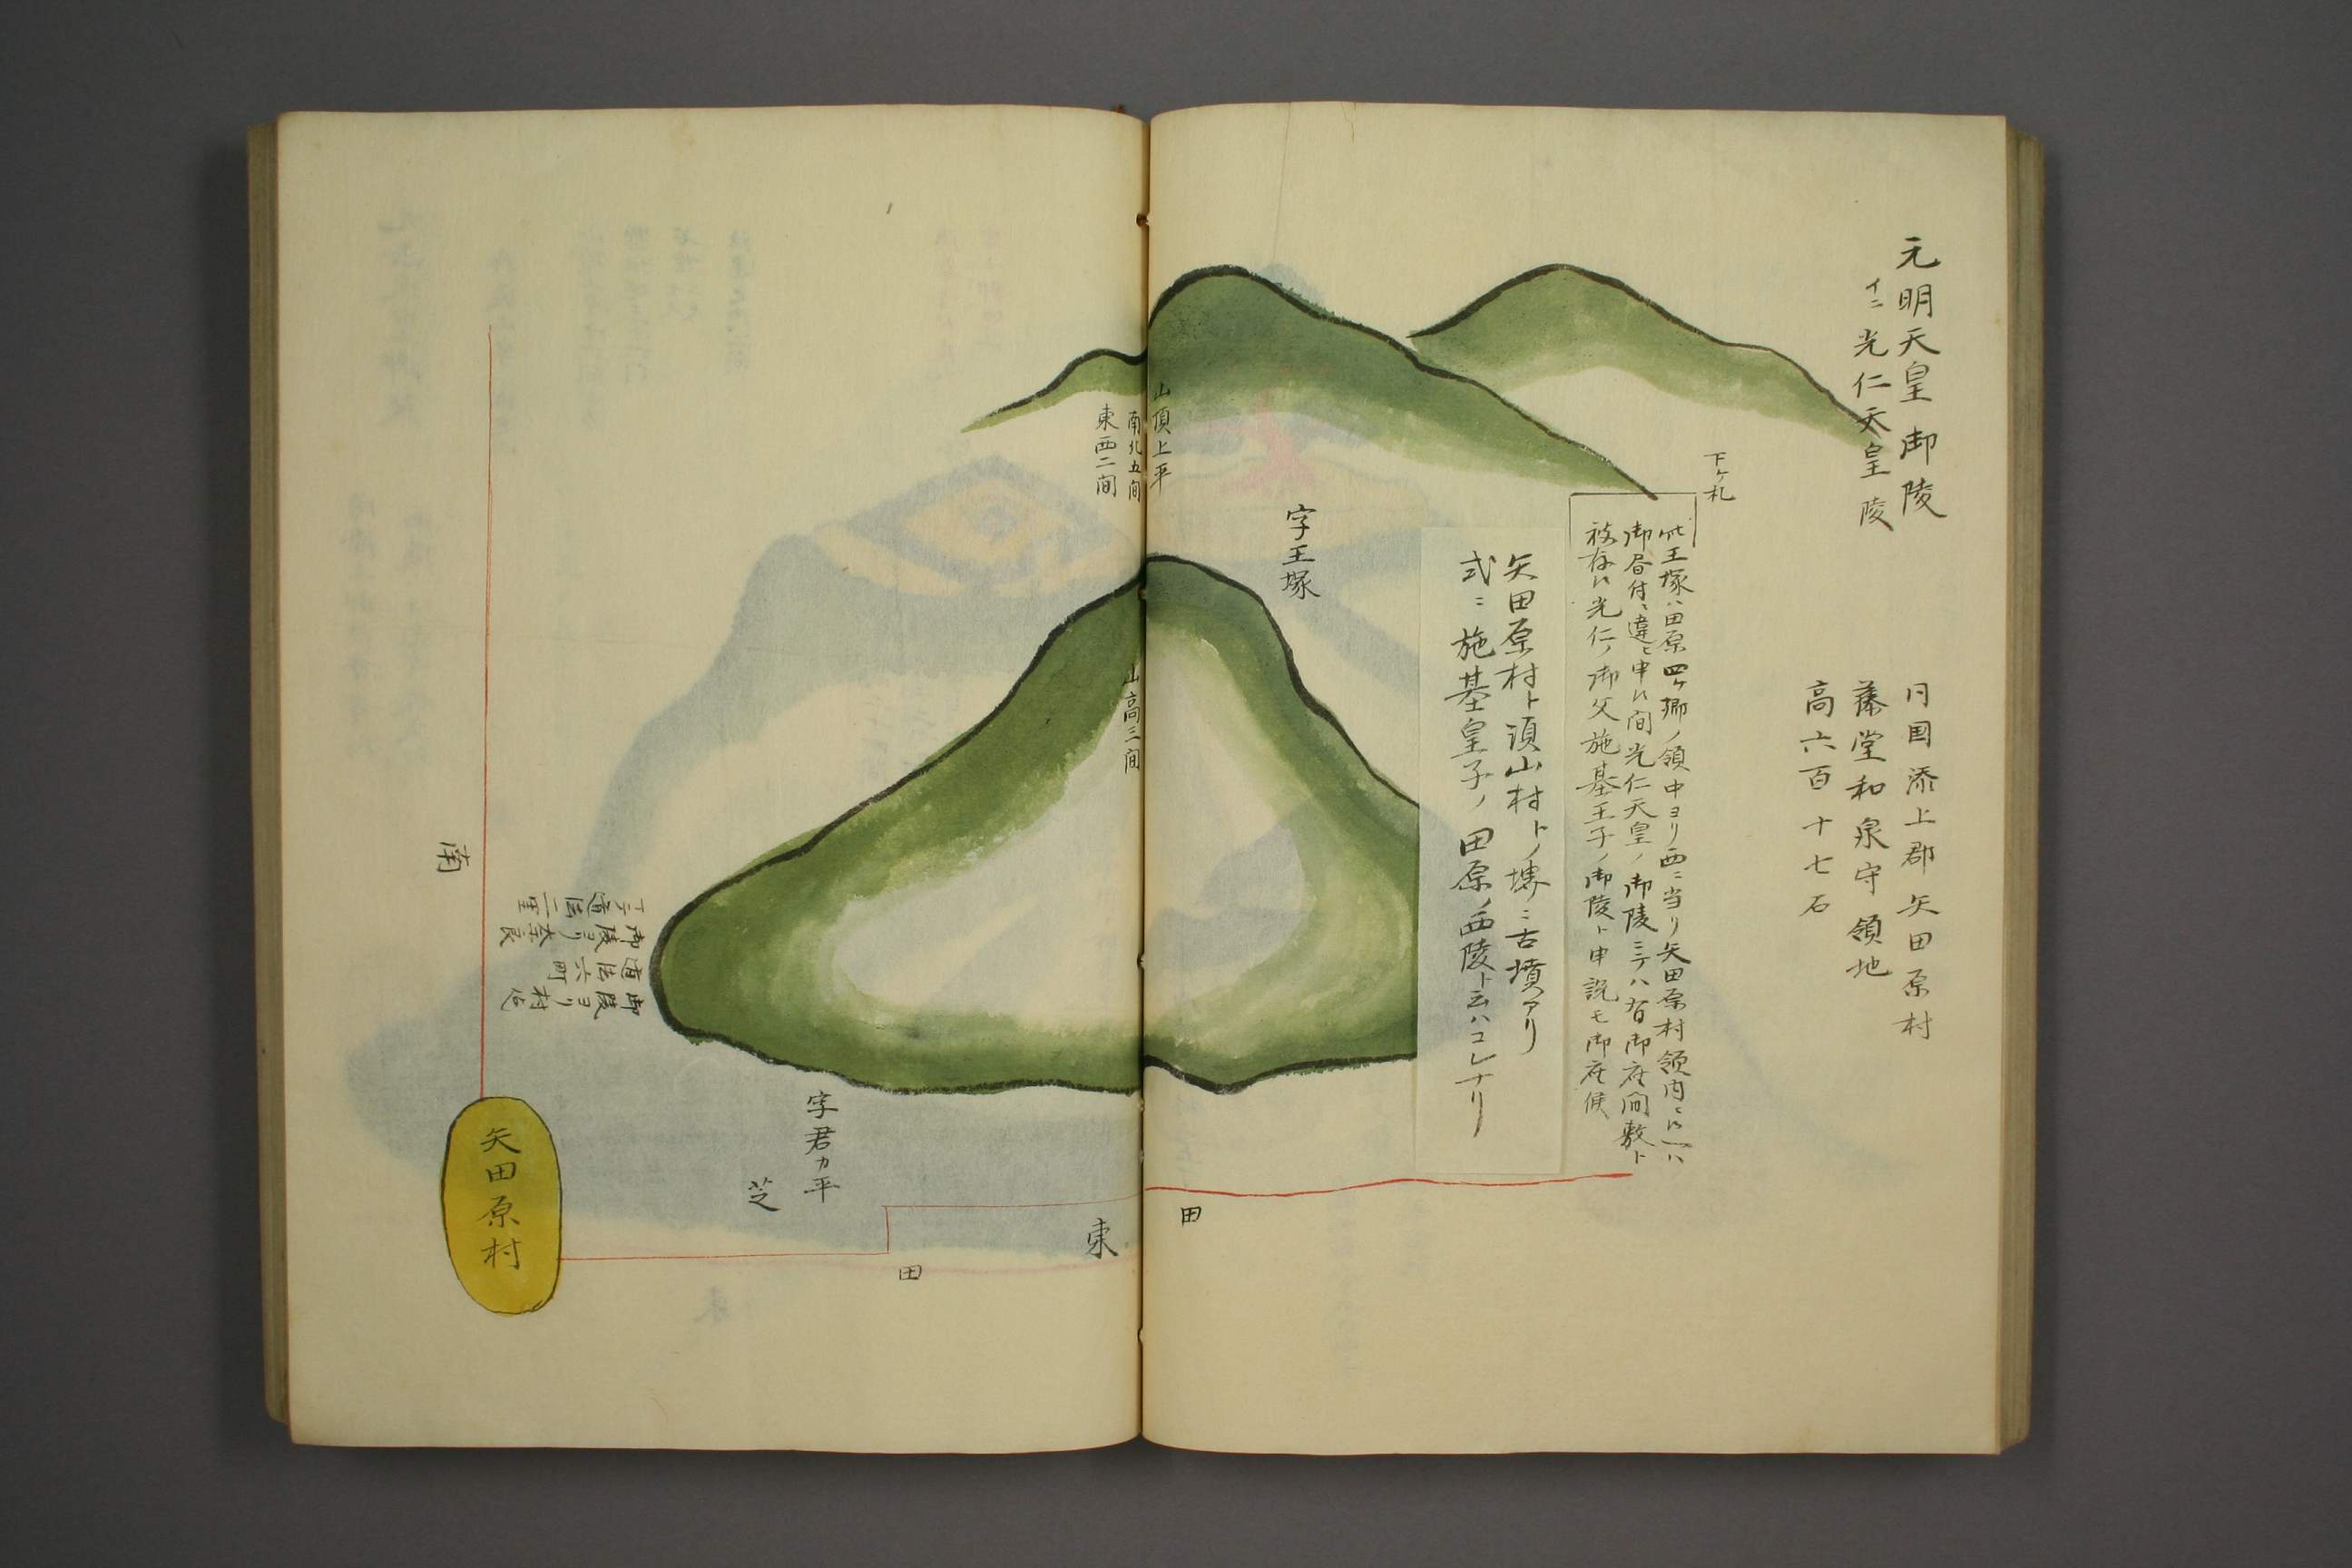 元明天皇御陵
イニ光仁天皇陵
同国添上郡矢田原村
藤堂和泉守領地
高六百十七石
下ケ札
此王塚ハ田原四ケ郷ノ領中ヨリ西ニ当リ矢田原村領内
御居付違ヒ申候間光仁天皇ノ御陵ニテハ有御座間敷ト
被存候光仁ノ御父施基王子ノ御陵ト申説モ御座候
矢田原村ト須山村トノ堺ニ古墳アリ
式ニ施基皇子ノ田原ノ西陵ト云ハコレナリ
字王塚
山頂上平
南北五間
東西二間
山高三間
田
東
田
字君カ平
芝
御陵ヨリ村迄
道法六町
御陵ヨリ奈良
マテ道法二里
南
矢田原村